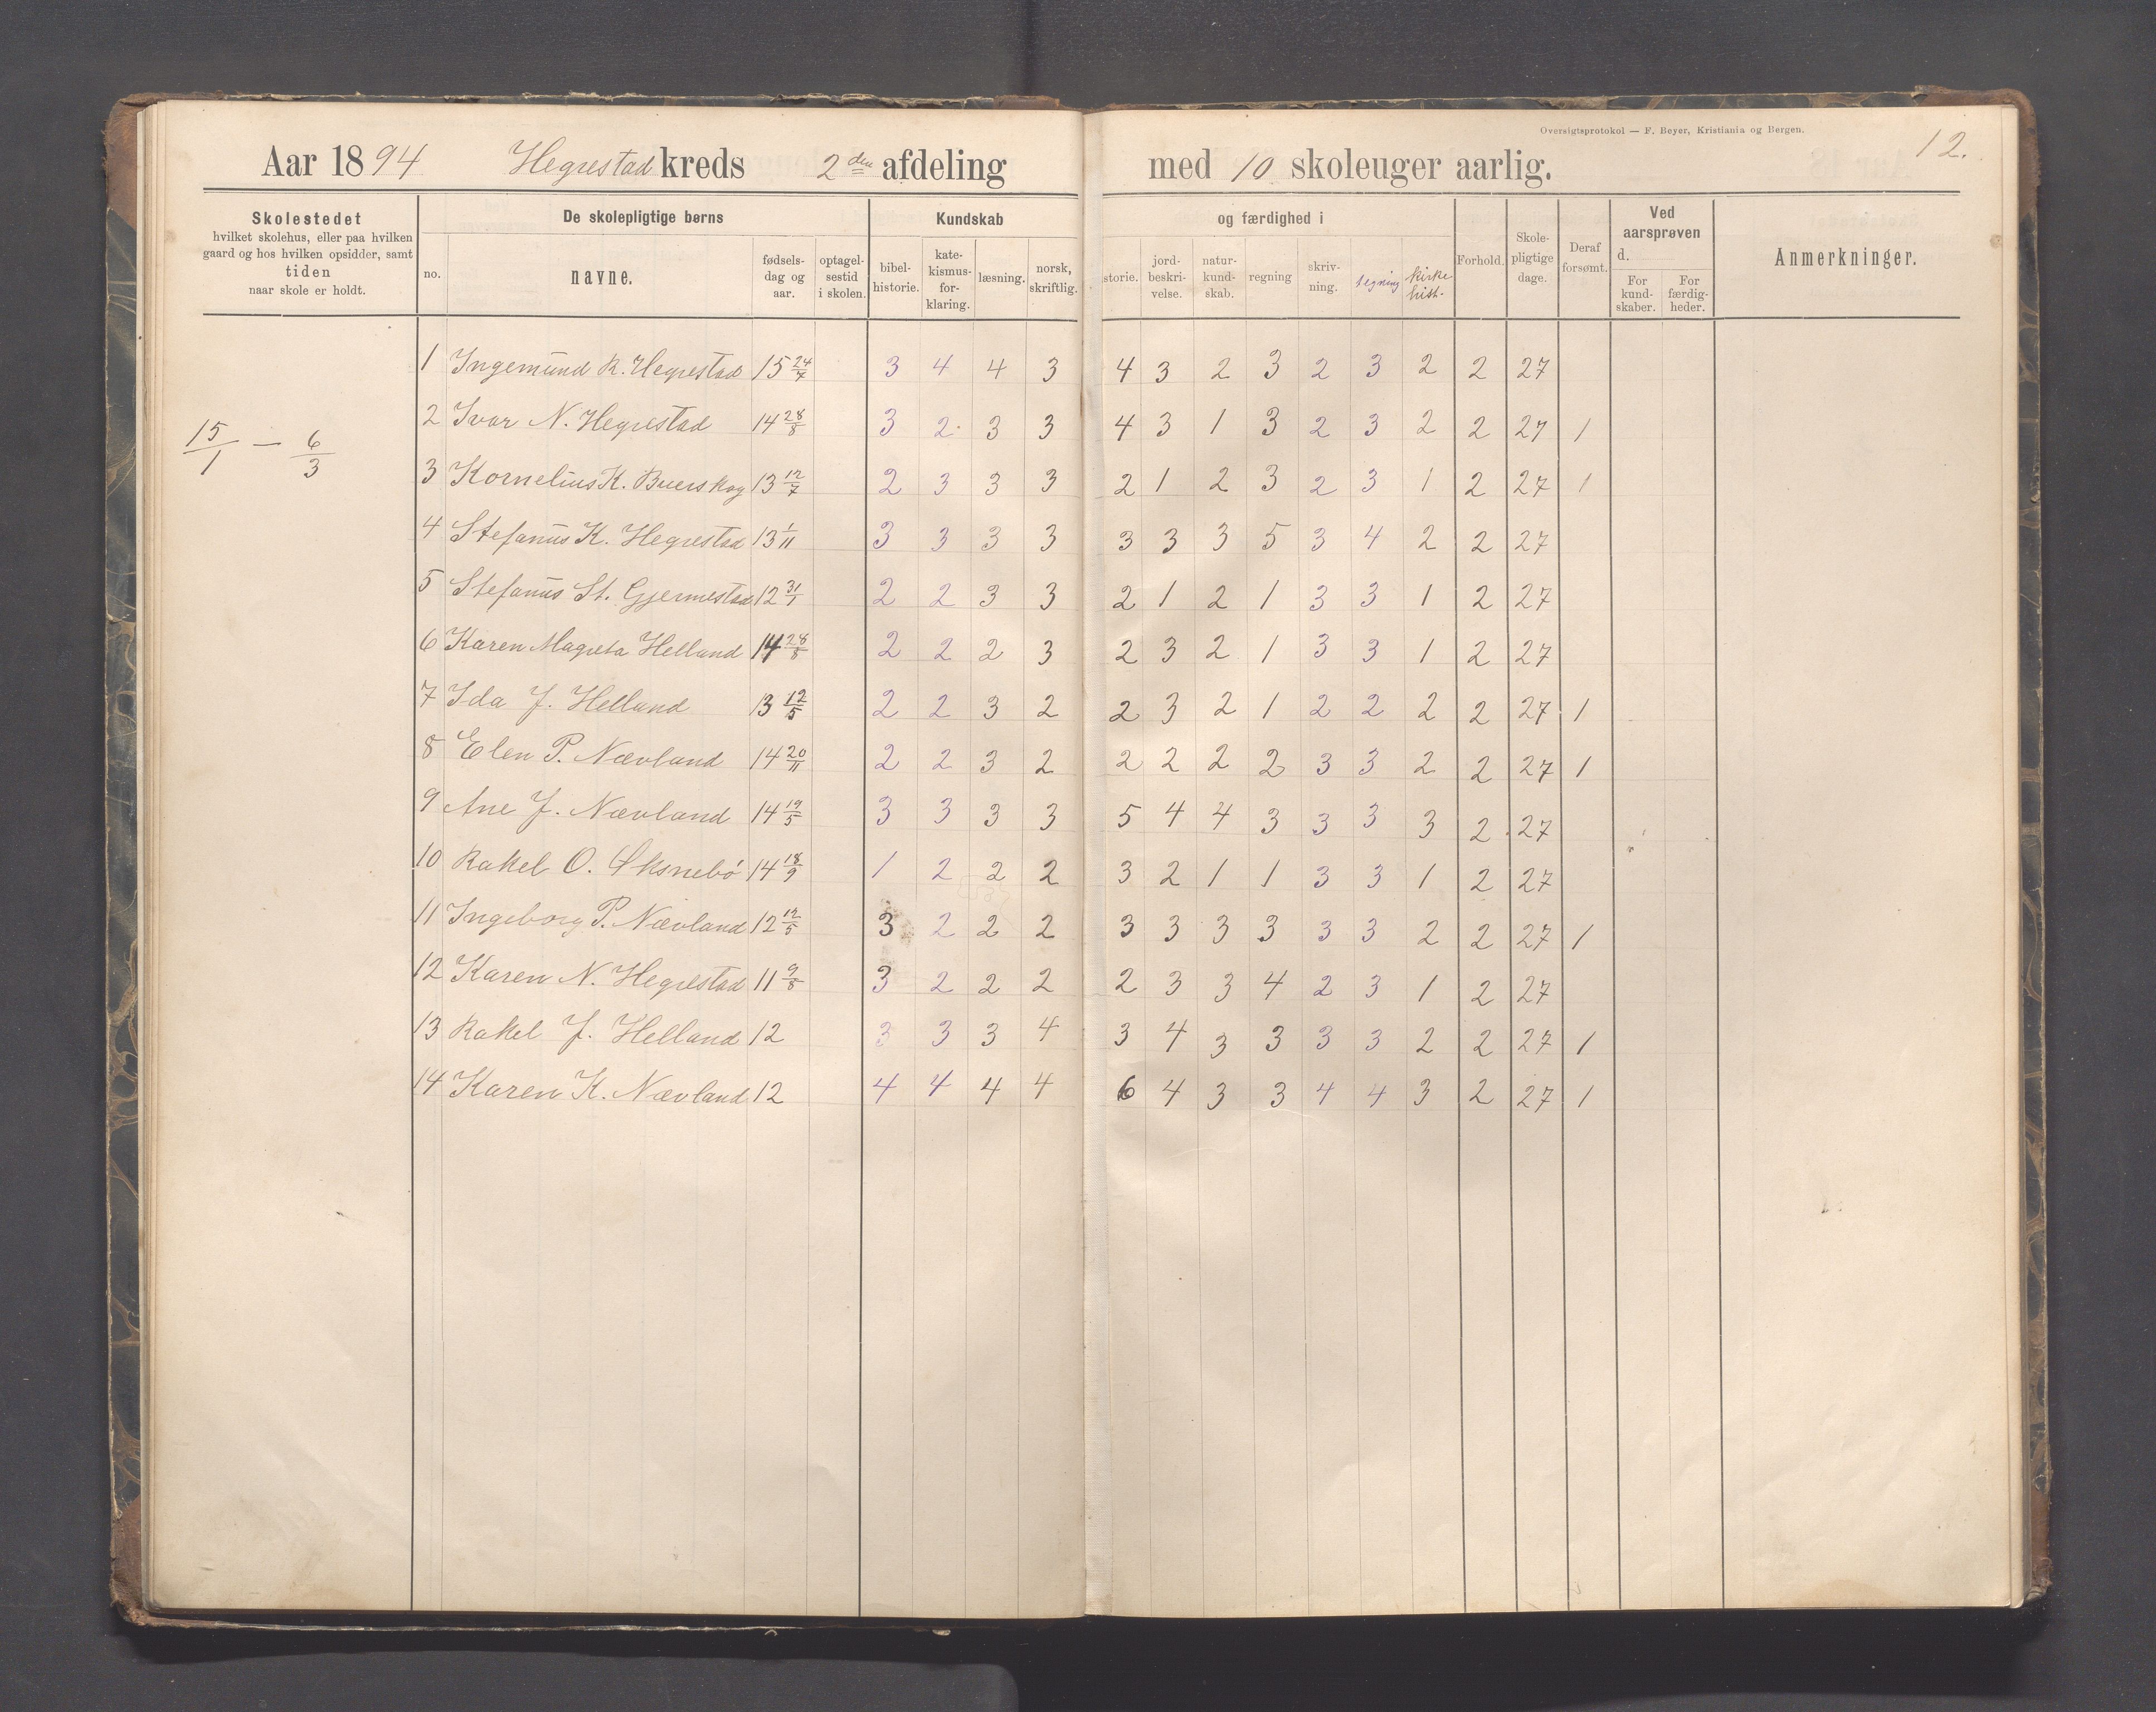 Oversigtsprotokol — F. Beyer, Kristiania og Bergen.
12.
Aar 1894 Hegrestad kreds 2den afdeling med 10 skoleuger aarlig.
Skolestedet
hvilket skolehus, eller paa hvilken
gaard og hos hvilken opsidder, samt
tiden
naar skole er holdt.
De skolepligtige børns
no. navne. fødsels-dag og aar. optagel-sestid i skolen.
Kundskab og færdighed i
bibel-historie. kate-kismus-for-klaring. læsning. norsk, skriftlig. storie. jord-beskri-velse. natur-kund-skab. regning skriv-ning. tegning kirke hist.
Forhold. Skole-pligtige dage. Deraf forsømt.
Ved aarsprøven d.
For kund-skaber. For færdig-heder.
Anmerkninger.
15/1 — 6/3
1 Ingemund R. Hegrestad 15 24/7 3 4 4 3 4 3 2 3 2 3 2 2 27
2 Ivar N. Hegrestad 14 28/8 3 2 3 3 4 3 1 3 2 3 2 2 27 1
3 Kornelius K. Buerskog 13 12/7 2 3 3 3 2 1 2 3 2 3 1 2 27 1
4 Stefanus K. Hegrestad 13 1/11 3 3 3 3 3 3 3 5 3 4 2 2 27
5 Stefanus St. Gjermestad 12 31/7 2 2 3 3 2 1 2 1 3 3 1 2 27
6 Karen Magreta Helland 14 28/8 2 2 2 3 2 3 2 1 3 3 1 2 27
7 Ida J. Helland 13 12/5 2 2 3 2 2 3 2 1 2 2 2 2 27 1
8 Elen P. Nævland 14 20/11 2 2 3 2 2 2 2 2 3 3 2 2 27 1
9 Ane J. Nævland 14 19/5 3 3 3 3 5 4 4 3 3 3 3 2 27
10 Rakel O. Øksnebø 14 18/9 1 2 2 2 3 2 1 1 3 3 1 2 27
11 Ingeborg P. Nævland 12 12/5 3 2 2 2 3 3 3 3 3 3 2 2 27 1
12 Karen N. Hegrestad 11 9/8 3 2 2 2 2 3 3 4 2 3 1 2 27
13 Rakel J. Helland 12 3 3 3 4 3 4 3 3 3 3 2 2 27 1
14 Karen K. Nævland 12 4 4 4 4 6 4 3 3 4 4 3 2 27 1